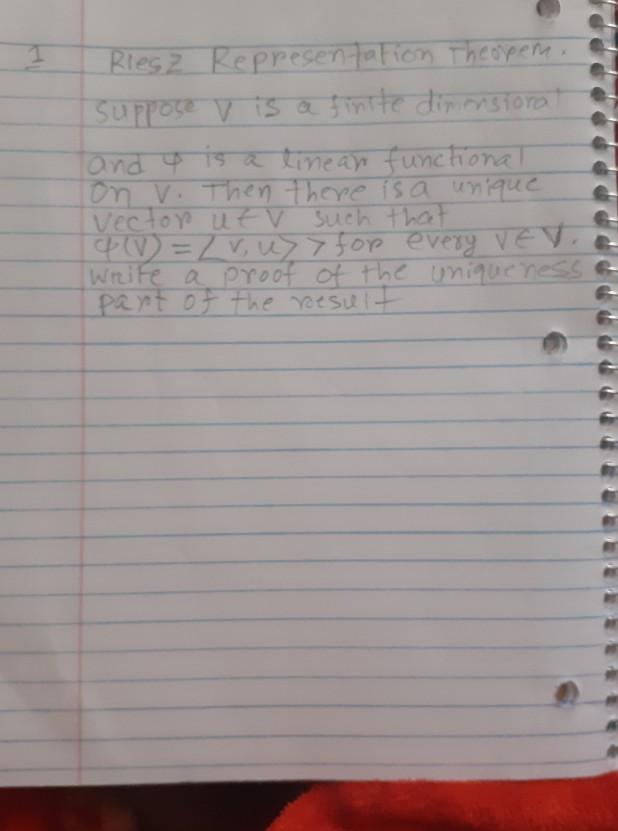 1 Riesz Representation Theorem.
suppose V is a finite dimensional
and φ is a linear functional
on V. Then there is a unique
vector u ∈ V such that
φ(V) = <v, u> > for every v ∈ V.
write a proof of the uniqueness
part of the result